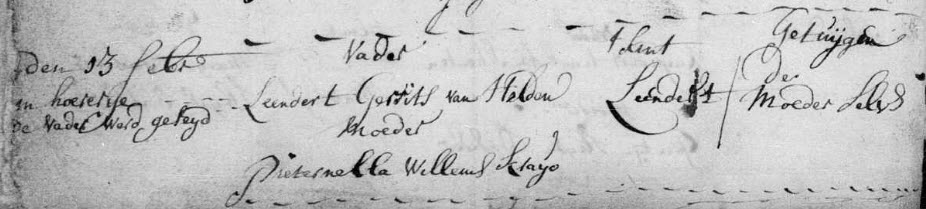 den 13 Febr
Vader
't kint
Getuijgen
in hoererije
Leendert Gerrits van Helden
Leendert
De
Moeder Selvs
de Vader werd geseyd
Moeder
Pieternella Willems Krayo